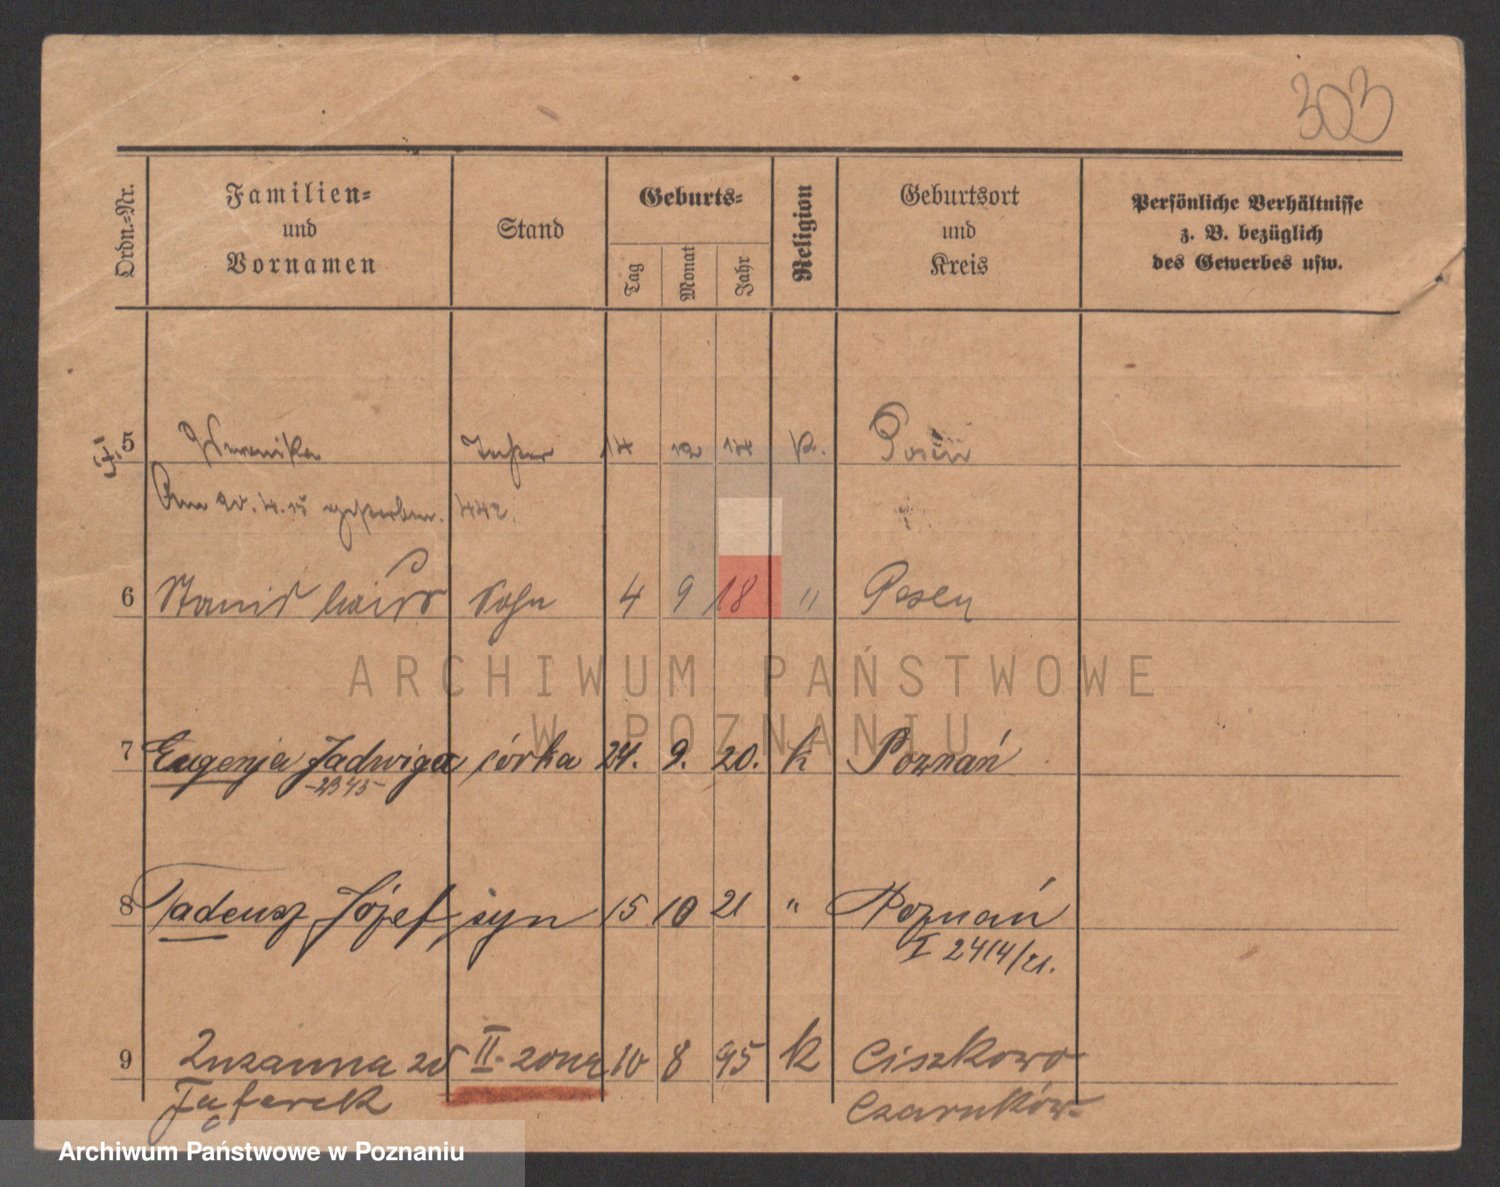 303
Ordn.=Nr.
Familien=
und
Vornamen
Stand
Geburts=
Tag
Monat
Jahr
Religion
Geburtsort
und
Kreis
Persönliche Verhältnisse
z. B. bezüglich
des Gewerbes usw.
5 Weronika Tochter 14 12 14 k. Posen
Am 20.4.15 gestorben. 442.
6 Stanislaus Sohn 4 9 18 " Posen
ARCHIWUM PAŃSTWOWE
W POZNANIU
7 Eugenja Jadwiga córka 24. 9. 20. k Poznań
-2345-
8 Tadeusz Józef syn 15 10 21 " Poznań
I 2414/21.
9 Zuzanna zd II-żona 10 8 95 k Ciszkowo
Czarnków-
Archiwum Państwowe w Poznaniu